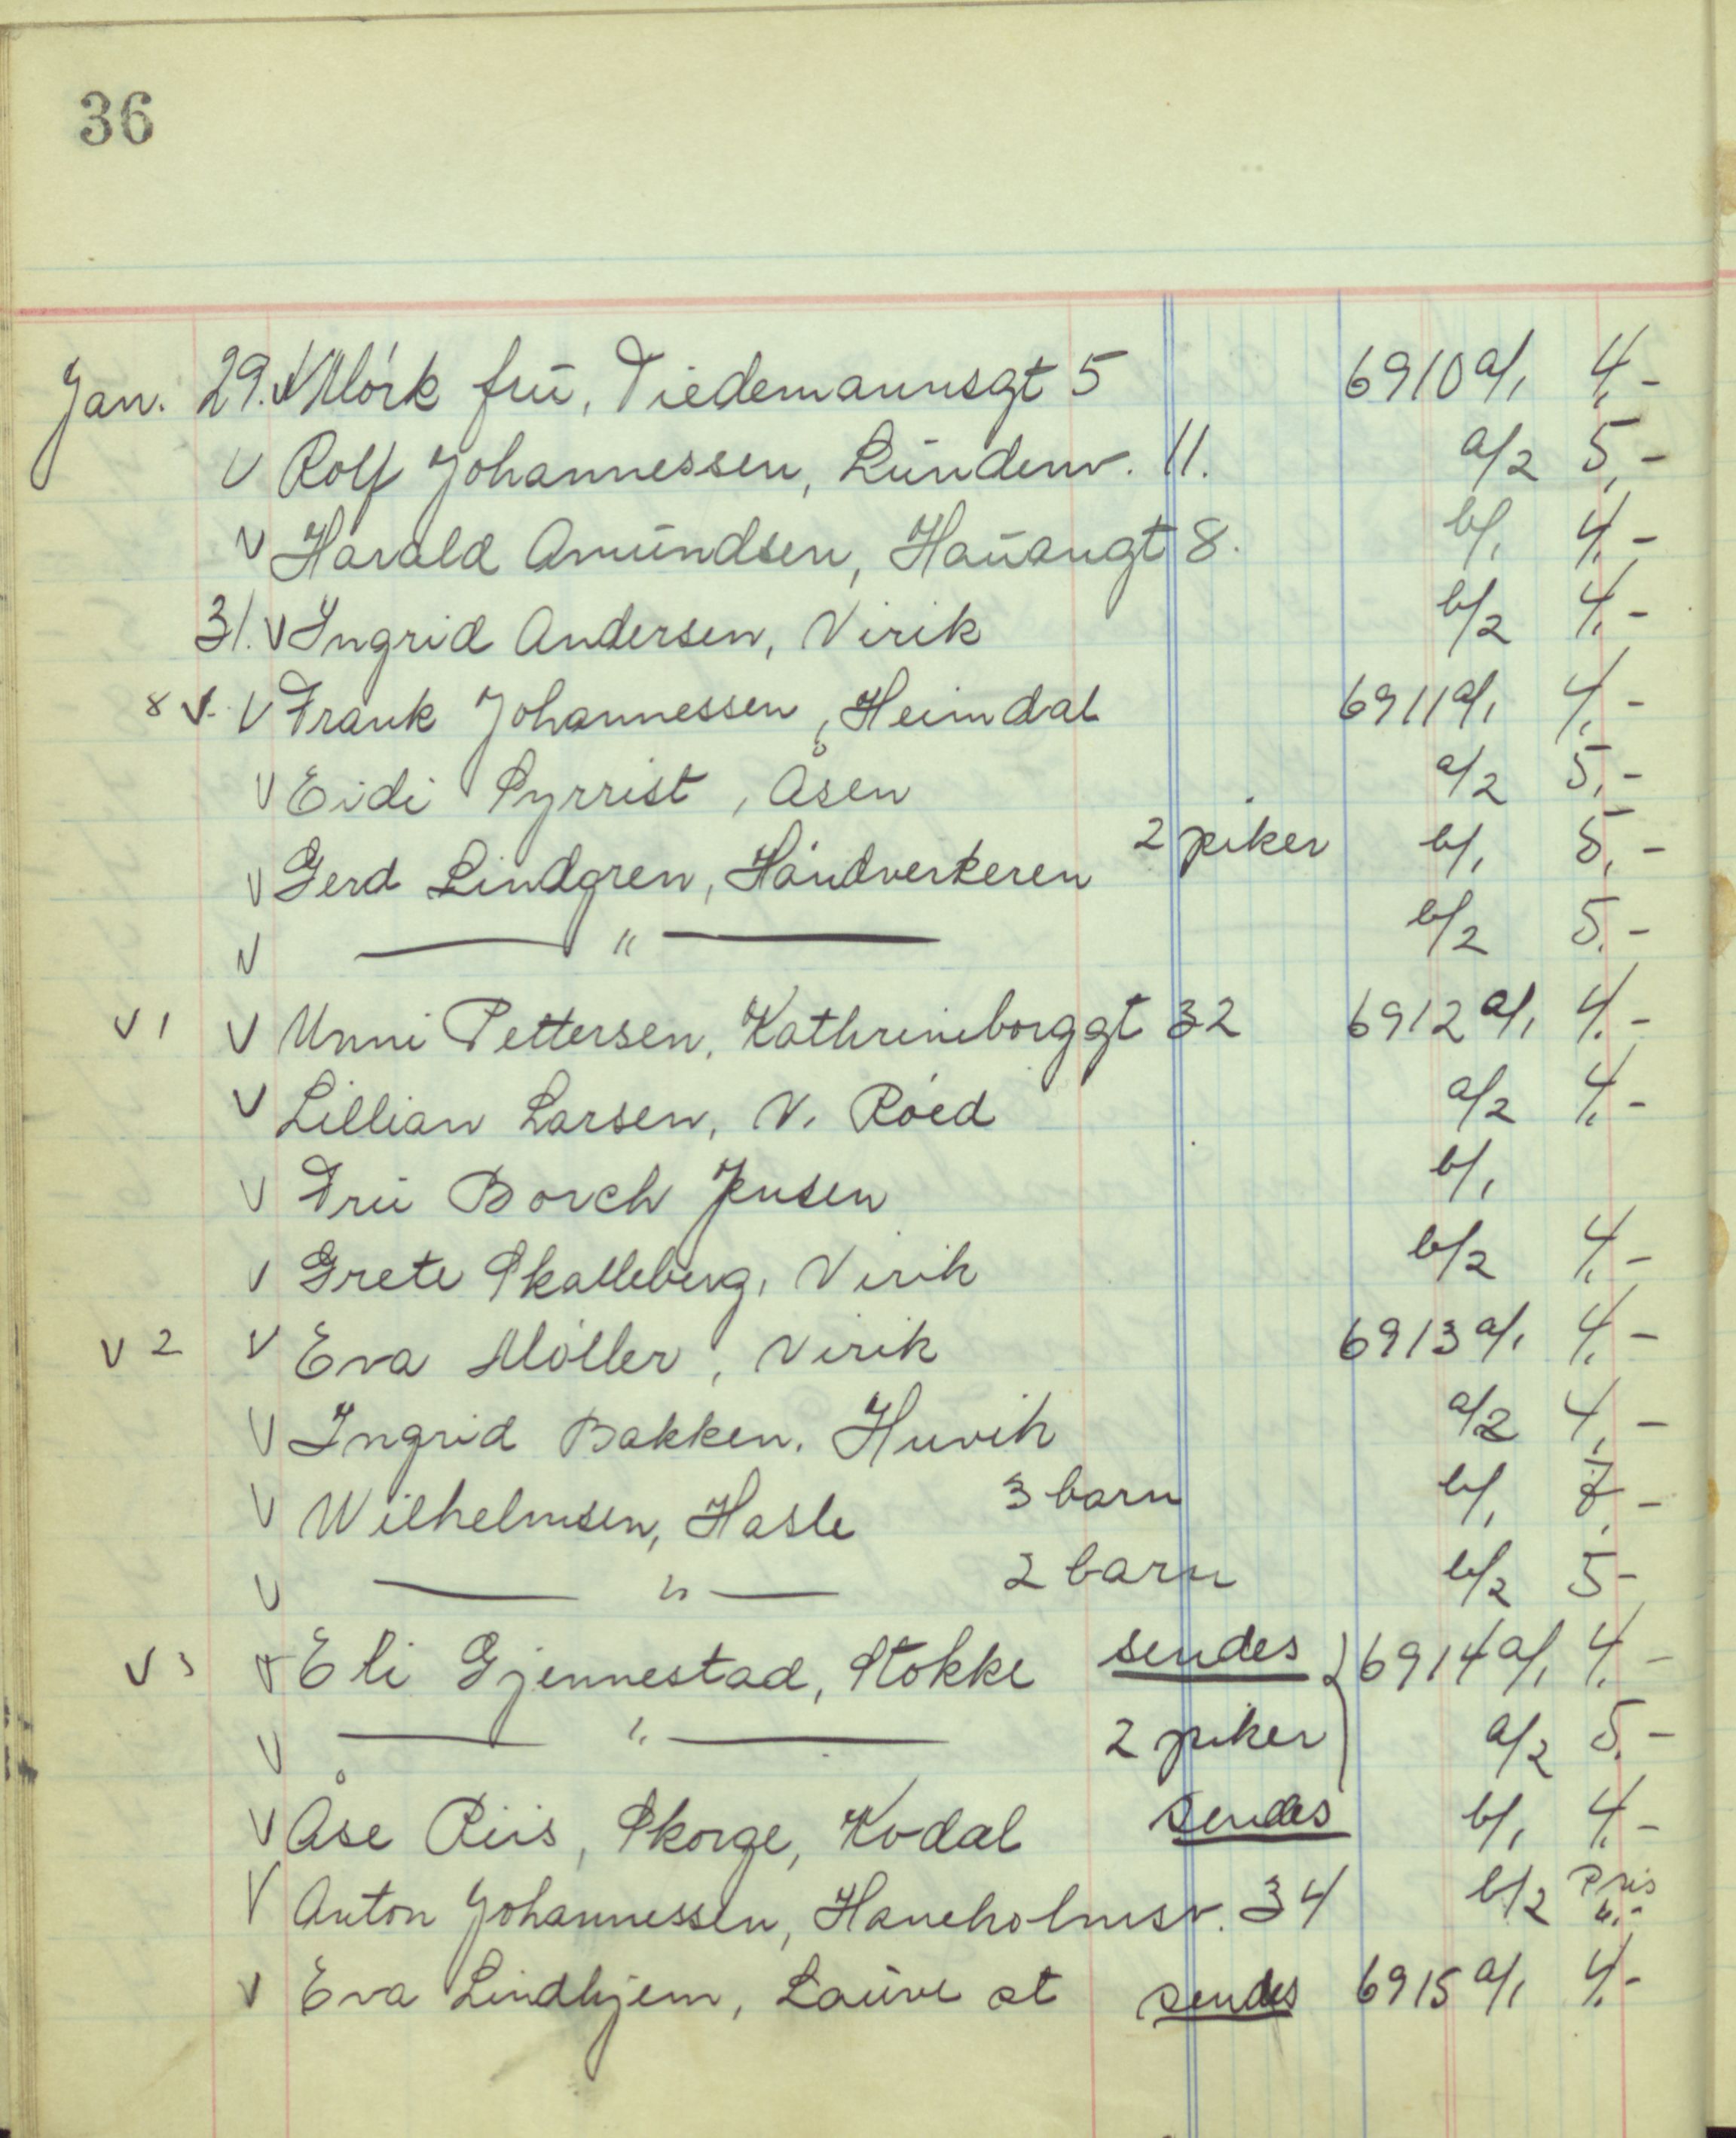 36
Jan. 29. V Mörk frū, Tiedemannsgt 5 6910 a/1 4,-
V Rolf Johannessen, Lūndenv. 11. a/2 5,-
V Harald Amūndsen, Haūangt 8. b/1 4,-
31. V Ingrid Andersen, Virik b/2 4,-
8 V. V Frank Johannessen, Heimdal 6911 a/1 4,-
V Eidi Syrrist, Åsen a/2 5,-
V Gerd Lindgren, Håndverkeren 2 piker b/1 5,-
V —— " —— b/2 5,-
V 1 V Unni Pettersen, Kathrineborggt 32 6912 a/1 4,-
V Lillian Larsen, V. Röed a/2 4,-
V Frū Borch Jensen b/1
V Grete Skalleberg, Virik b/2 4,-
V 2 V Eva Möller, Virik 6913 a/1 4,-
V Ingrid Bakken, Huvik a/2 4,-
V Wilhelmsen, Hasle 3 barn b/1 7,-
V —— " —— 2 barn b/2 5-
V 3 V Eli Gjennestad, Stokke sendes 6914 a/1 4,-
V —— " —— 2 piker a/2 5,-
V Åse Riis, Skorge, Kodal sendes b/1 4,-
V Anton Johannessen, Haneholmsv. 34 b/2 Pris 4,-
V Eva Lindhjem, Laūve st sendes 6915 a/1 4,-